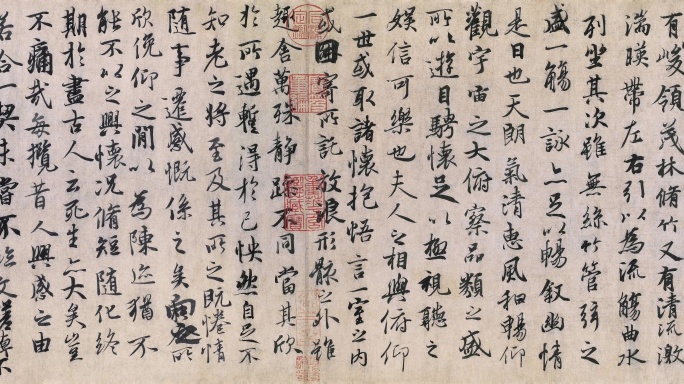 有峻領茂林脩竹又有清流激
湍暎帶左右引以為流觴曲水
列坐其次雖無絲竹管弦之
盛一觴一詠亦足以暢敘幽情
是日也天朗氣清惠風和暢仰
觀宇宙之大俯察品類之盛
所以遊目騁懷足以極視聽之
娛信可樂也夫人之相與俯仰
一世或取諸懷抱悟言一室之內
或因寄所託放浪形骸之外雖
趣舍萬殊靜躁不同當其欣
於所遇暫得於己怏然自足不
知老之將至及其所之既惓情
隨事遷感慨係之矣向之所
欣俛仰之閒以為陳迹猶不
能不以之興懷況脩短隨化終
期於盡古人云死生亦大矣豈
不痛哉每攬昔人興感之由
若合一契未嘗不臨文嗟悼不